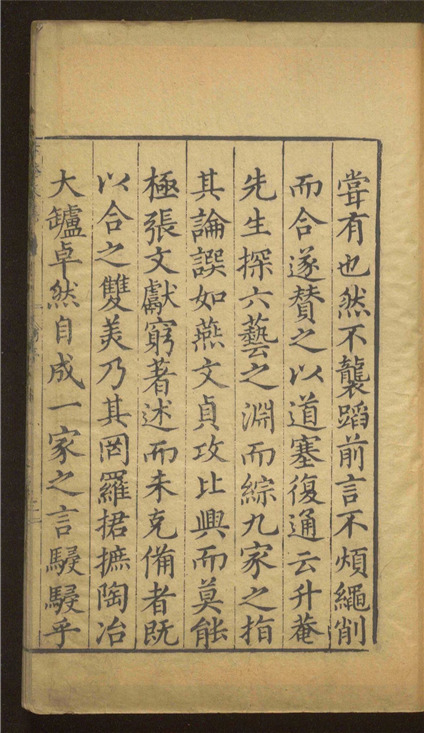 甞有也然不襲蹈前言不煩繩削
而合遂賛之以道塞復通云升菴
先生探六藝之淵而綜九家之指
其論譔如燕文貞攻比興而莫能
極張文獻窮著述而未克備者既
以合之雙美乃其罔羅捃摭陶冶
大鑪卓然自成一家之言駸駸乎